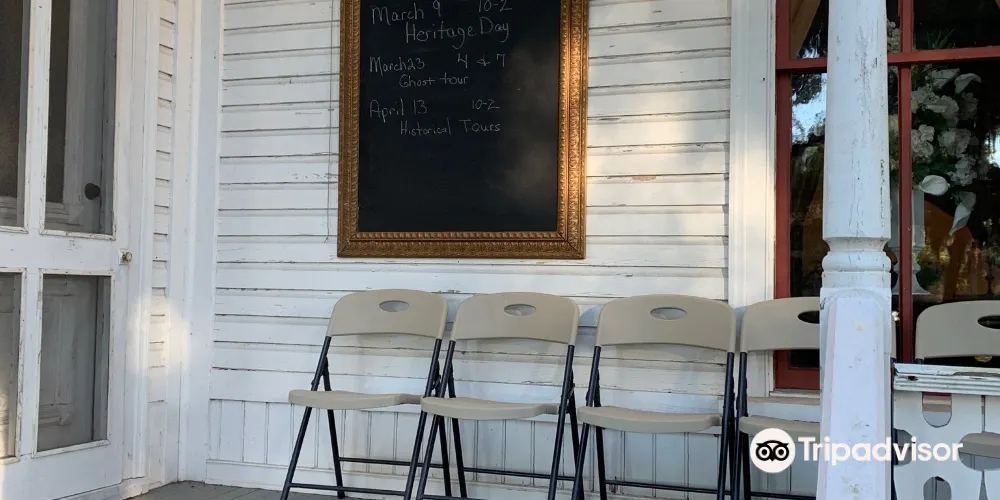 March 9 10-2
Heritage Day
March 23 4 & 7
Ghost tour
April 13 10-2
Historical Tours
Tripadvisor